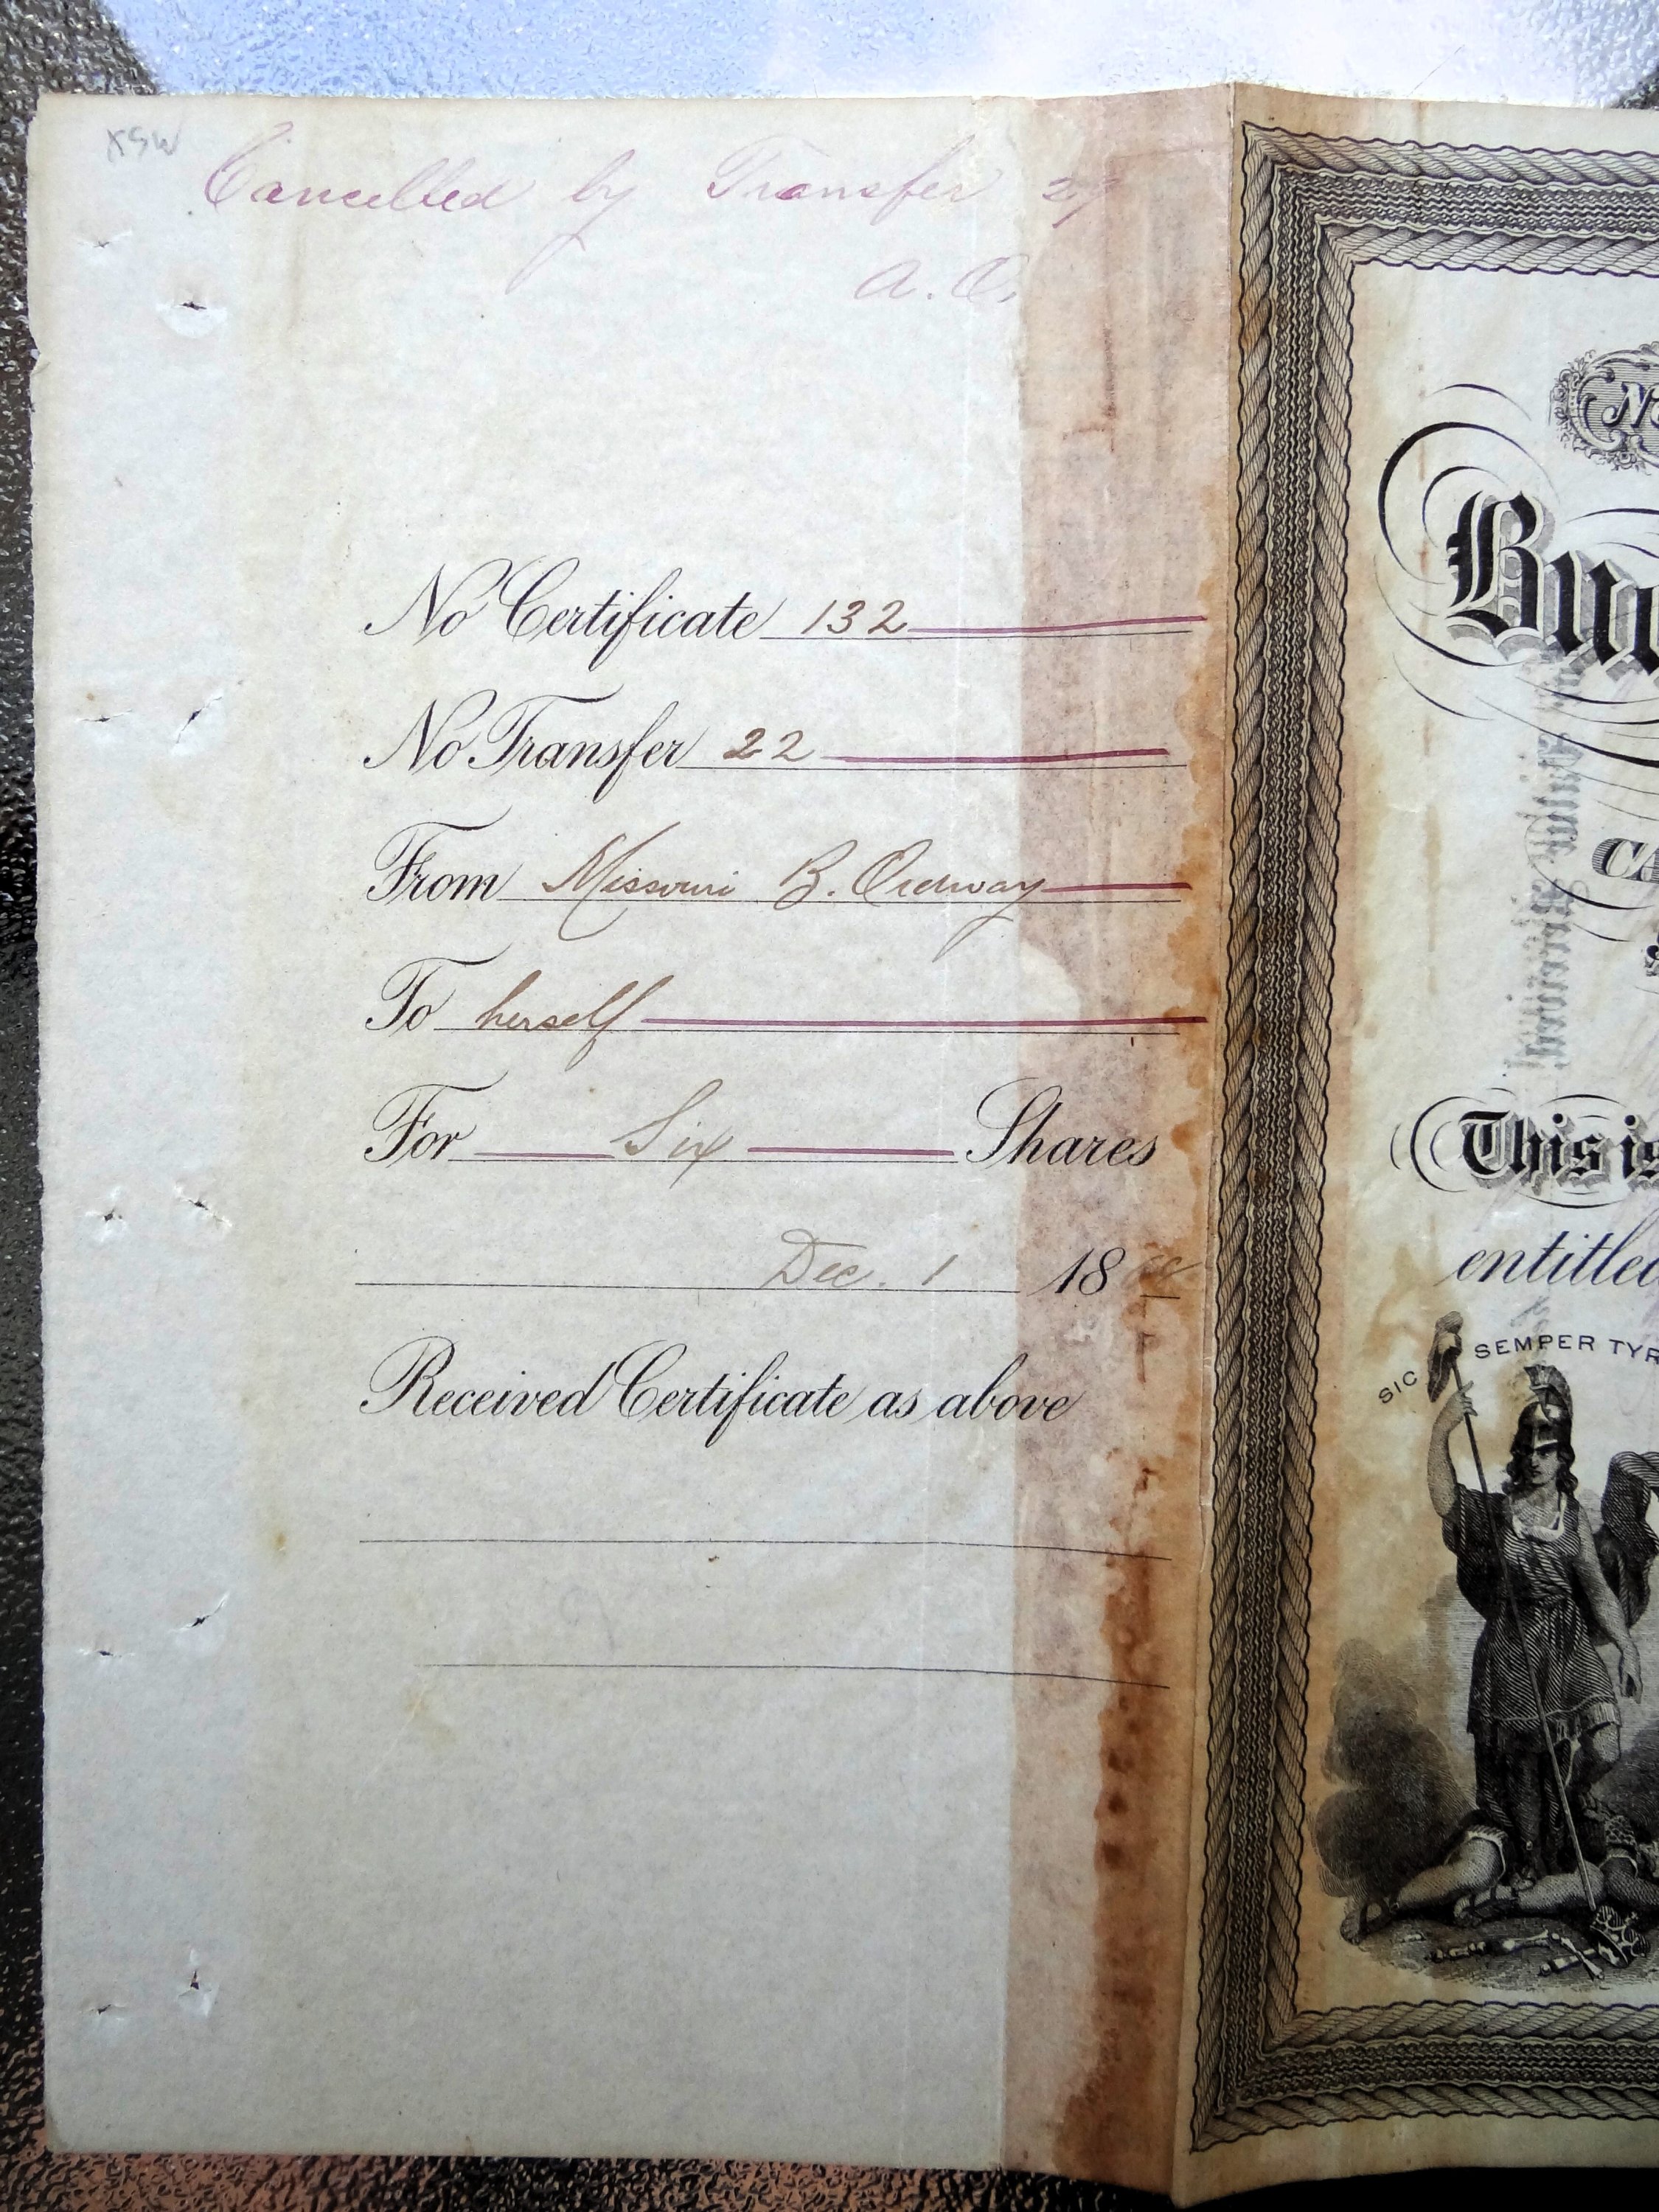 XSW
Cancelled by Transfer 27
A. O.
No Certificate 132
No Transfer 22
From Missouri B. Ordway
To herself
For Six Shares
Dec. 1 18
Received Certificate as above
No
This is
entitled
SIC SEMPER